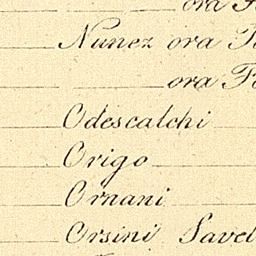 ora
Nunez ora
ora
Odescalchi
Origo
Ornani
Orsini Savel